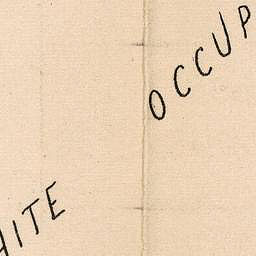 OCCUP
HITE